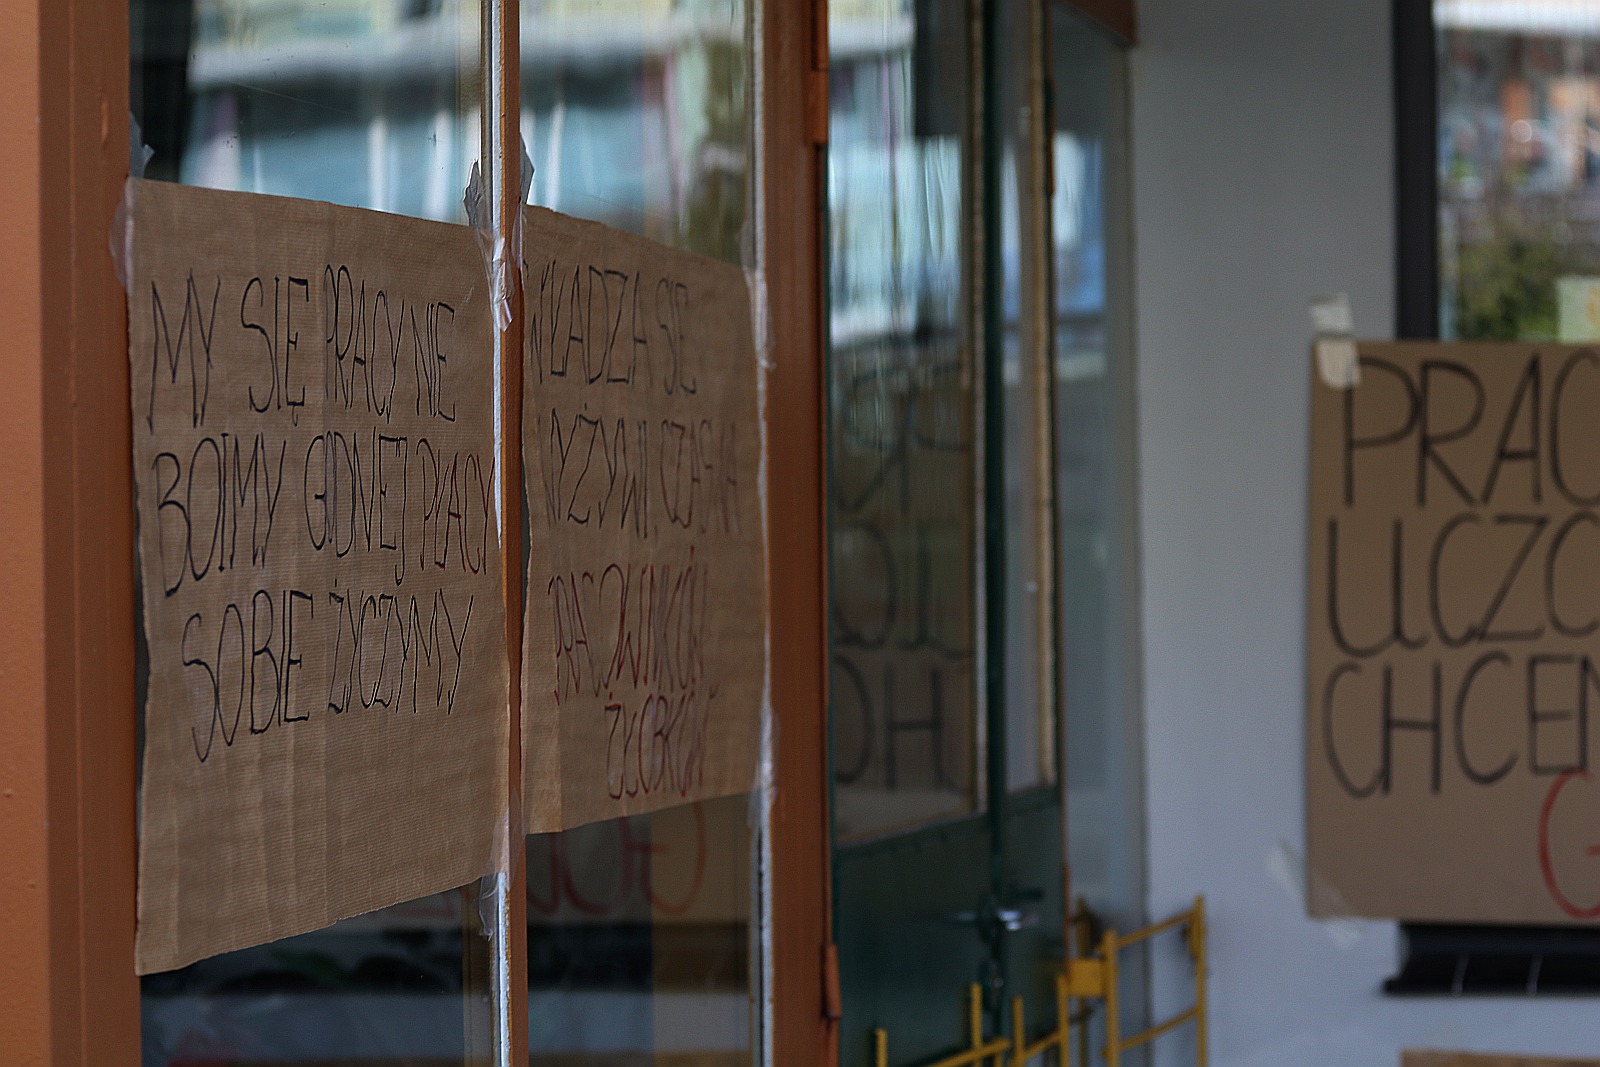 MY SIĘ PRACY NIE
BOIMY GODNEJ PŁACY
SOBIE ŻYCZYMY
WŁADZA SIĘ
WYŻYWI. CZAS NA
PRACOWNIKÓW
ŻŁOBKÓW
PRAC
UCZC
CHCEM
G